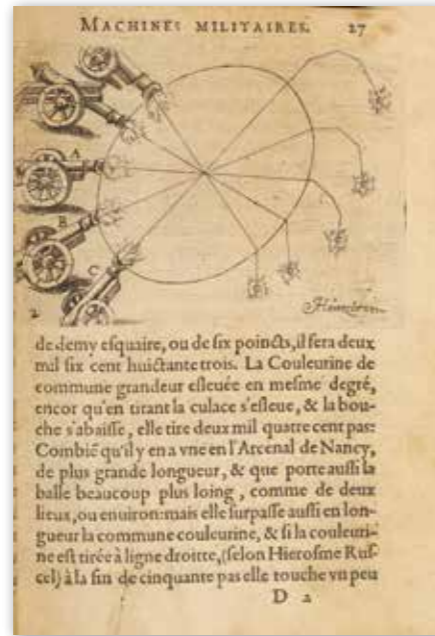 MACHINES MILITAIRES. 27
A
B
C
2
de demy esquaire, ou de six poincts, il sera deux
mil six cent huictante trois. La Couleurine de
commune grandeur esleuée en mesme degré,
encor qu'en tirant la culace s'esleue, & la bou-
che s'abaisse, elle tire deux mil quatre cent pas:
Combiẽ qu'il y en a vne en l'Arcenal de Nancy,
de plus grande longueur, & que porte aussi la
balle beaucoup plus loing, comme de deux
lieux, ou enuiron: mais elle surpasse aussi en lon-
gueur la commune couleurine, & si la couleuri-
ne est tirée à ligne droitte, (selon Hierosme Rus-
cel) à la fin de cinquante pas elle touche vn peu
D 2